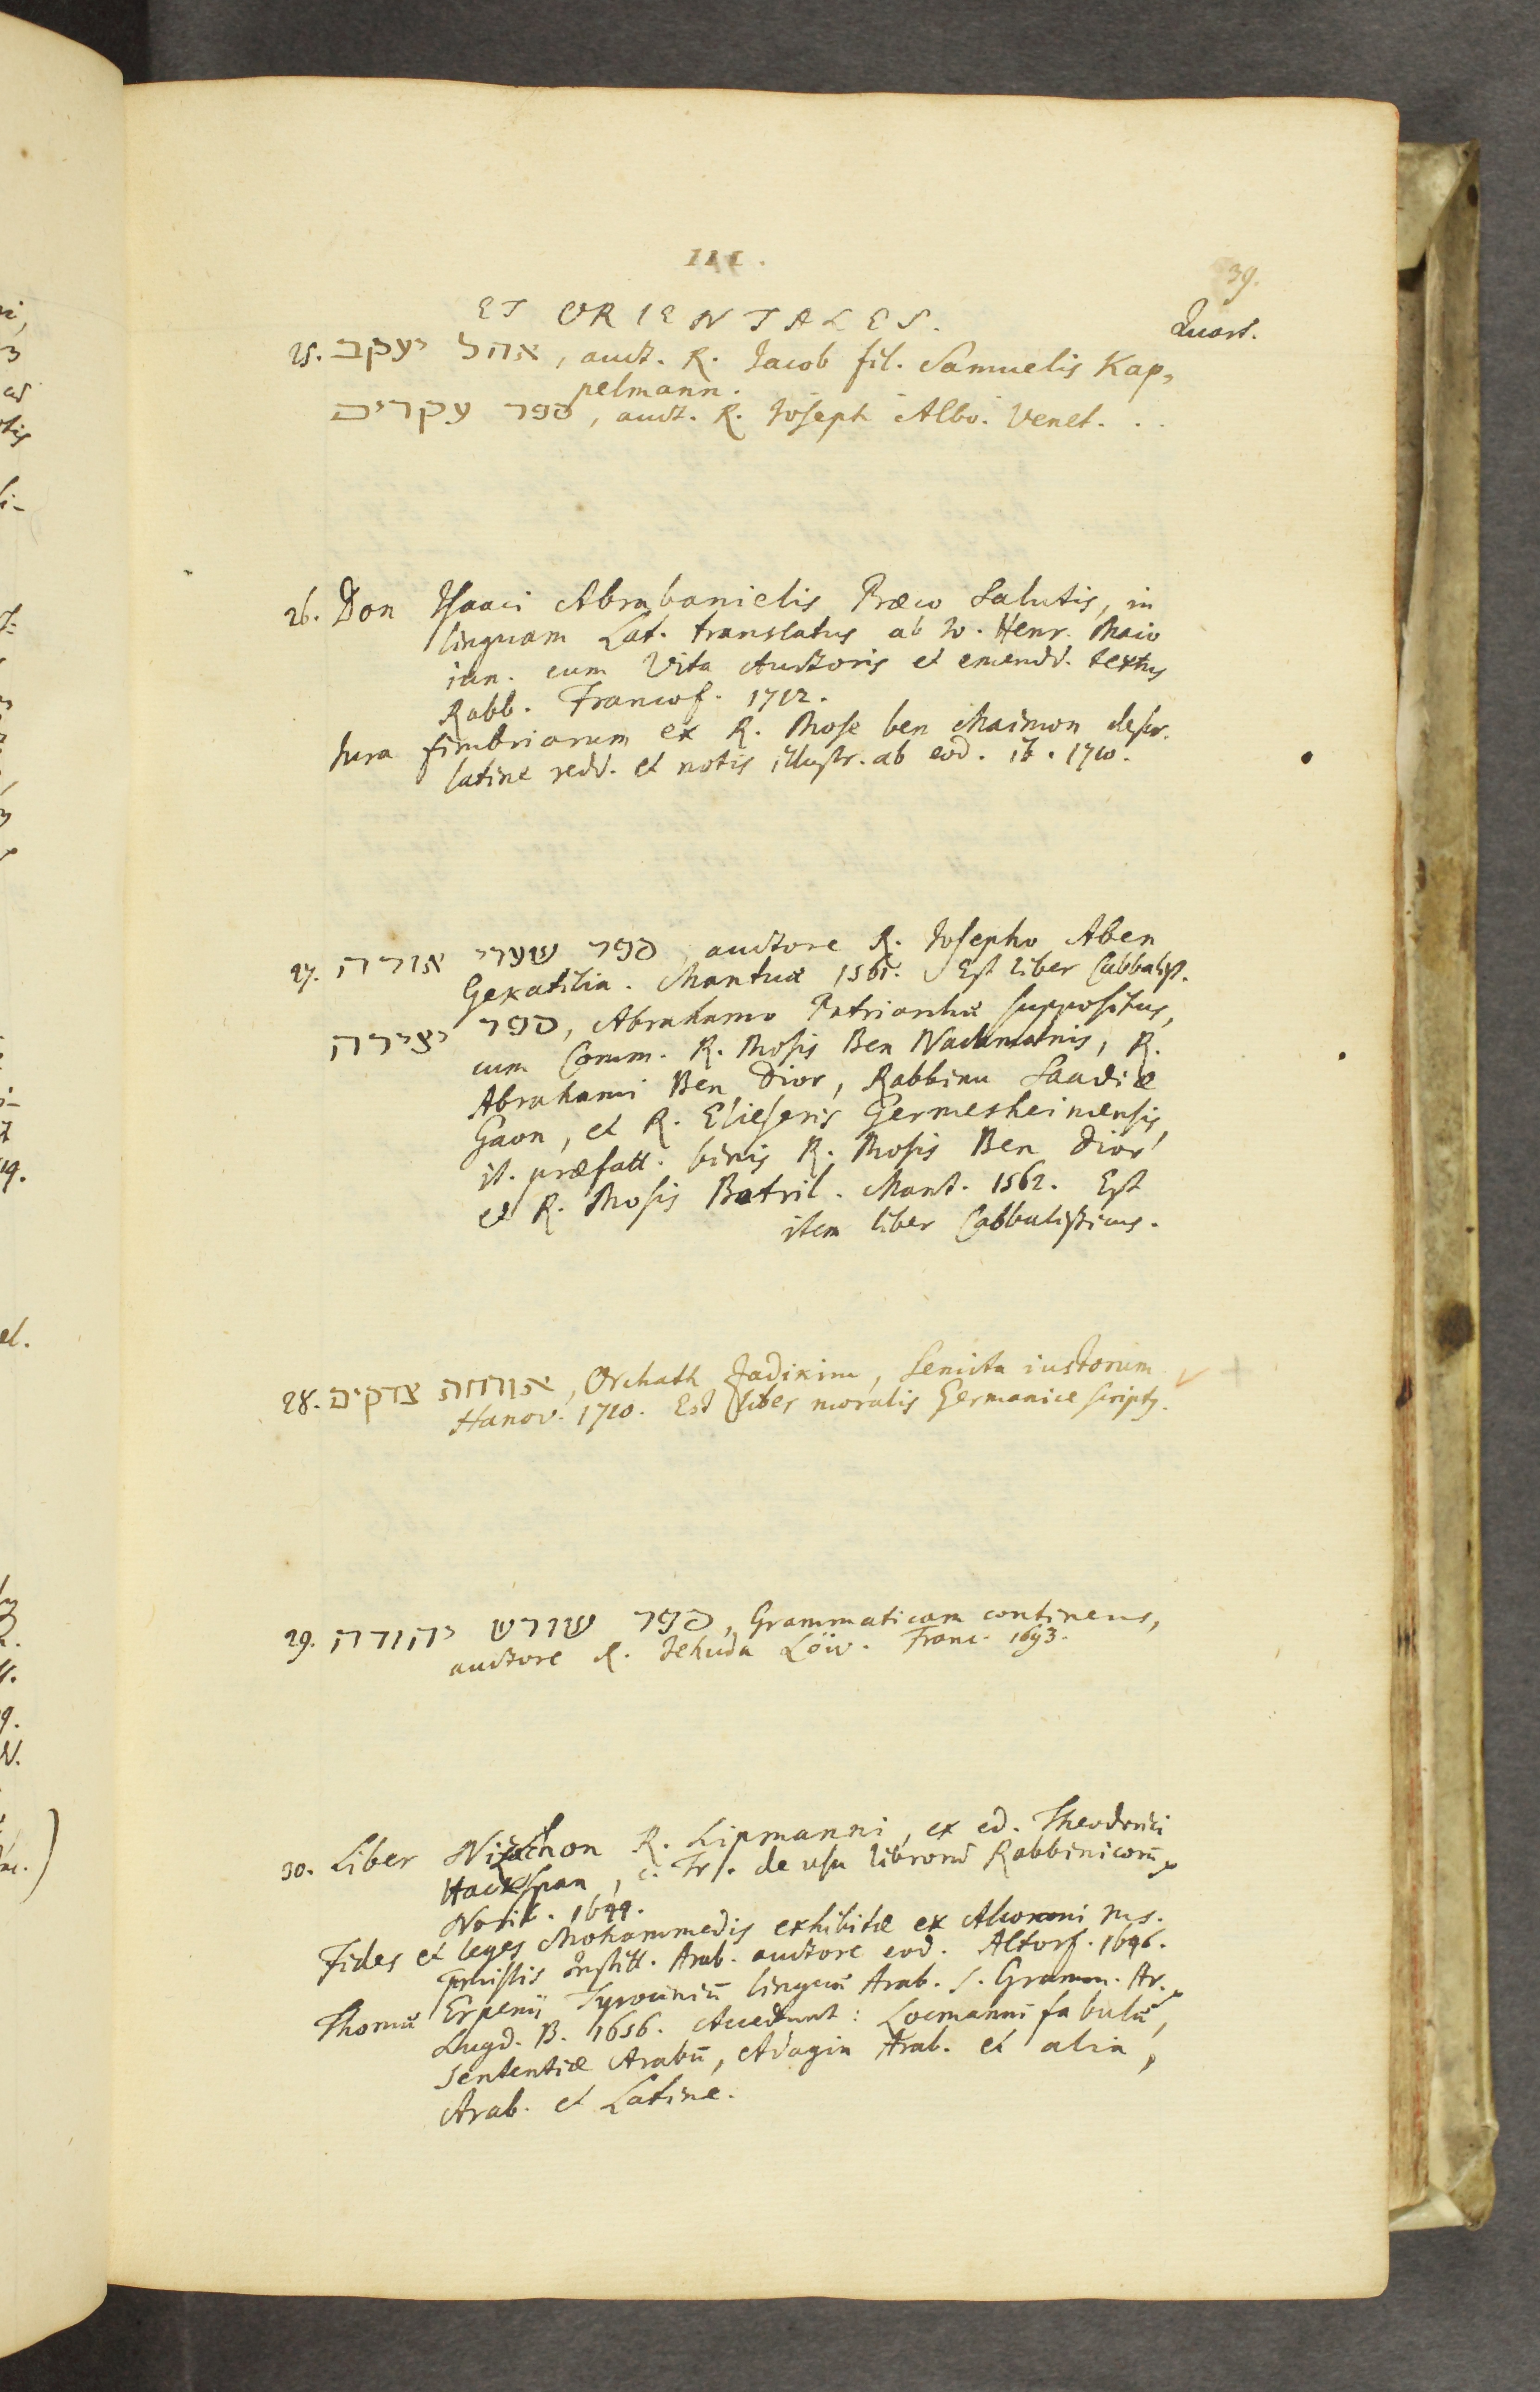 III.
39.
ET ORIENTALES.
Quart.
25. אהל יעקב, auct. R. Jacob fil. Samuelis Kap,
pelmann.
ספר עקרים, auct. R. Joseph Albo. Venet. . .
26. Don Isaaci Abrabanielis Præco Salutis, in
linguam Lat. translatus ab Jo. Henr. Maio
iun. cum Vita Auctoris et emendd. textus
Rabb. Francof. 1712.
Jura fimbriarum ex R. Mose ben Maimon descr.
latine redd. et notis illustr. ab eod. ib. 1710.
27. ספר שערי אורה, auctore R. Josepho Aben
Gekatilia. Mantuæ 1561. Est liber Cabbalist.
ספר יצירה, Abrahamo Patriarchæ suppositus,
cum Comm. R. Mosis Ben Nachmanis, R.
Abrahami Ben Dior, Rabbinu Saadiæ
Gaon, et R. Elieseris Germesheimensis,
it. præfatt. binis R. Mosis Ben Dior
et R. Mosis Botril. Mant. 1562. Est
item liber Cabbalisticus.
28. אורחות צדקים, Orchath Zadikim, Semita iustorum
Hanov. 1710. Est liber moralis Germanice scripts.
29. ספר שורש יהודה, Grammaticam continens,
auctore R. Jehuda Löw. Franc. 1693.
30. Liber Nizachon R. Lipmanni, ex ed. Theodorici
Hackspan, c. Trs. de usu librorū Rabbinicorū,
Norib. 1644.
Fides et leges Mohammedis exhibitæ ex Alkorani ms.
præmissis Institt. Arab. auctore eod. Altorf. 1646.
Thomæ Erpenii Tyrociniū linguæ Arab. s. Gramm. Ar.
Lugd. B. 1656. Accedunt: Locmanni fabulæ,
Sententiæ Arabū, Adagia Arab. et alia,
Arab. et Latine.